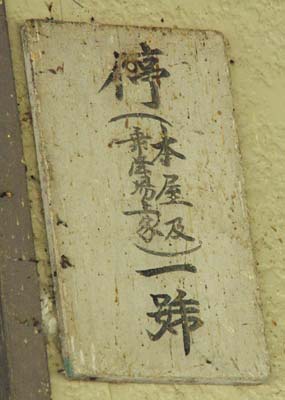 停
（本屋及
乗降場上家）
一號